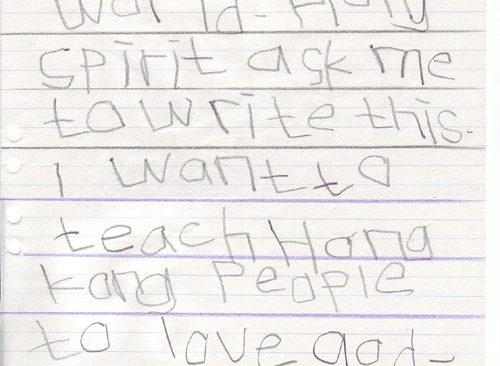 world-Holy
spirit ask me
to write this.
I want to
teach Hong
Kong People
to love god-